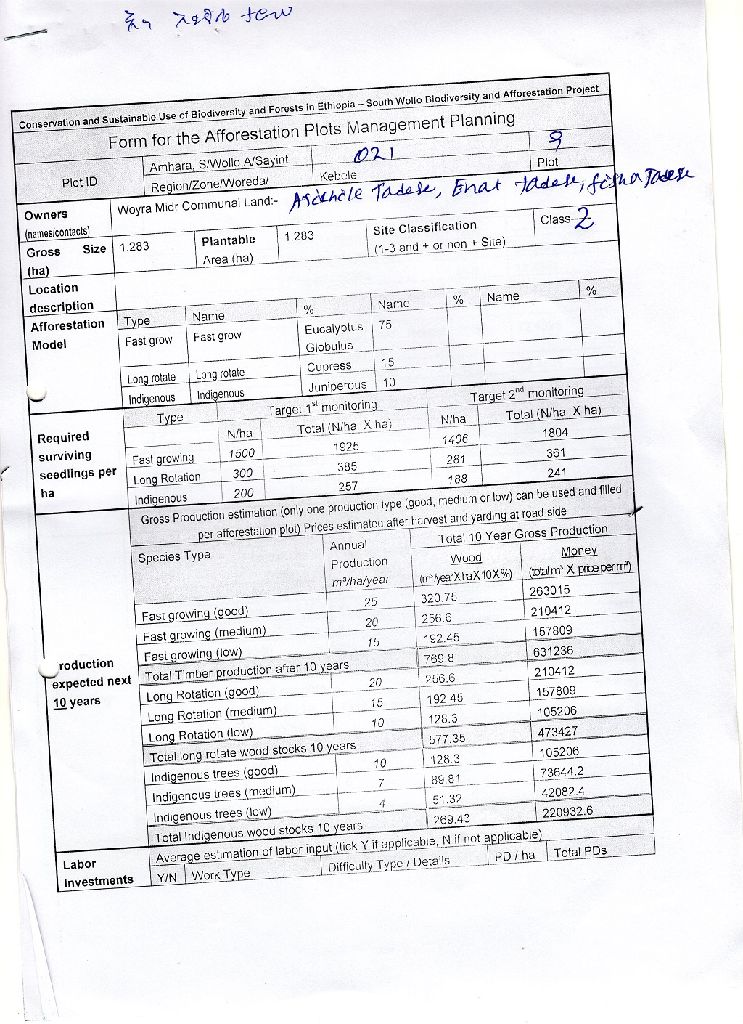 Conservation and Sustainable Use of Biodiversity and Forests in Ethiopia – South Wollo Biodiversity and Afforestation Project
Form for the Afforestation Plots Management Planning
Plot ID
Amhara, S/Wollo A/Sayint
021
9
Region/Zone/Woreda/
Kebele
Plot
Owners
(names/contacts)
Woyra Midr Communal Land:-
Tadese, Enat Tadese, Tadese
Gross Size
(ha)
1.283
Plantable
Area (ha)
1.283
Site Classification
(1-3 and + or non + Site)
Class 2
Location
description
Afforestation
Model
Type Name % Name % Name %
Fast grow Fast grow Eucalyptus
Globulus 75
Long rotate Long rotate Cupress 15
Indigenous Indigenous Juniperous 10
Required
surviving
seedlings per
ha
Type Target 1st monitoring Target 2nd monitoring
N/ha Total (N/ha X ha) N/ha Total (N/ha X ha)
Fast growing 1500 1925 1406 1804
Long Rotation 300 385 281 361
Indigenous 200 257 188 241
Gross Production estimation (only one production type (good, medium or low) can be used and filled
per afforestation plot) Prices estimated after harvest and yarding at road side
roduction
expected next
10 years
Species Type
Annual
Production
m³/ha/year
Total 10 Year Gross Production
Wood
(m³/year X ha X 10 X %)
Money
(total m³ X price per m³)
Fast growing (good) 25 320.75 263015
Fast growing (medium) 20 256.6 210412
Fast growing (low) 15 192.45 157809
Total Timber production after 10 years 769.8 631236
Long Rotation (good) 20 256.6 210412
Long Rotation (medium) 15 192.45 157809
Long Rotation (low) 10 128.3 105206
Total long rotate wood stocks 10 years 577.35 473427
Indigenous trees (good) 10 128.3 105206
Indigenous trees (medium) 7 89.81 73644.2
Indigenous trees (low) 4 51.32 42082.4
Total Indigenous wood stocks 10 years 269.43 220932.6
Labor
Investments
Average estimation of labor input (tick Y if applicable, N if not applicable)
Y/N Work Type Difficulty Type / Details PD / ha Total PDs